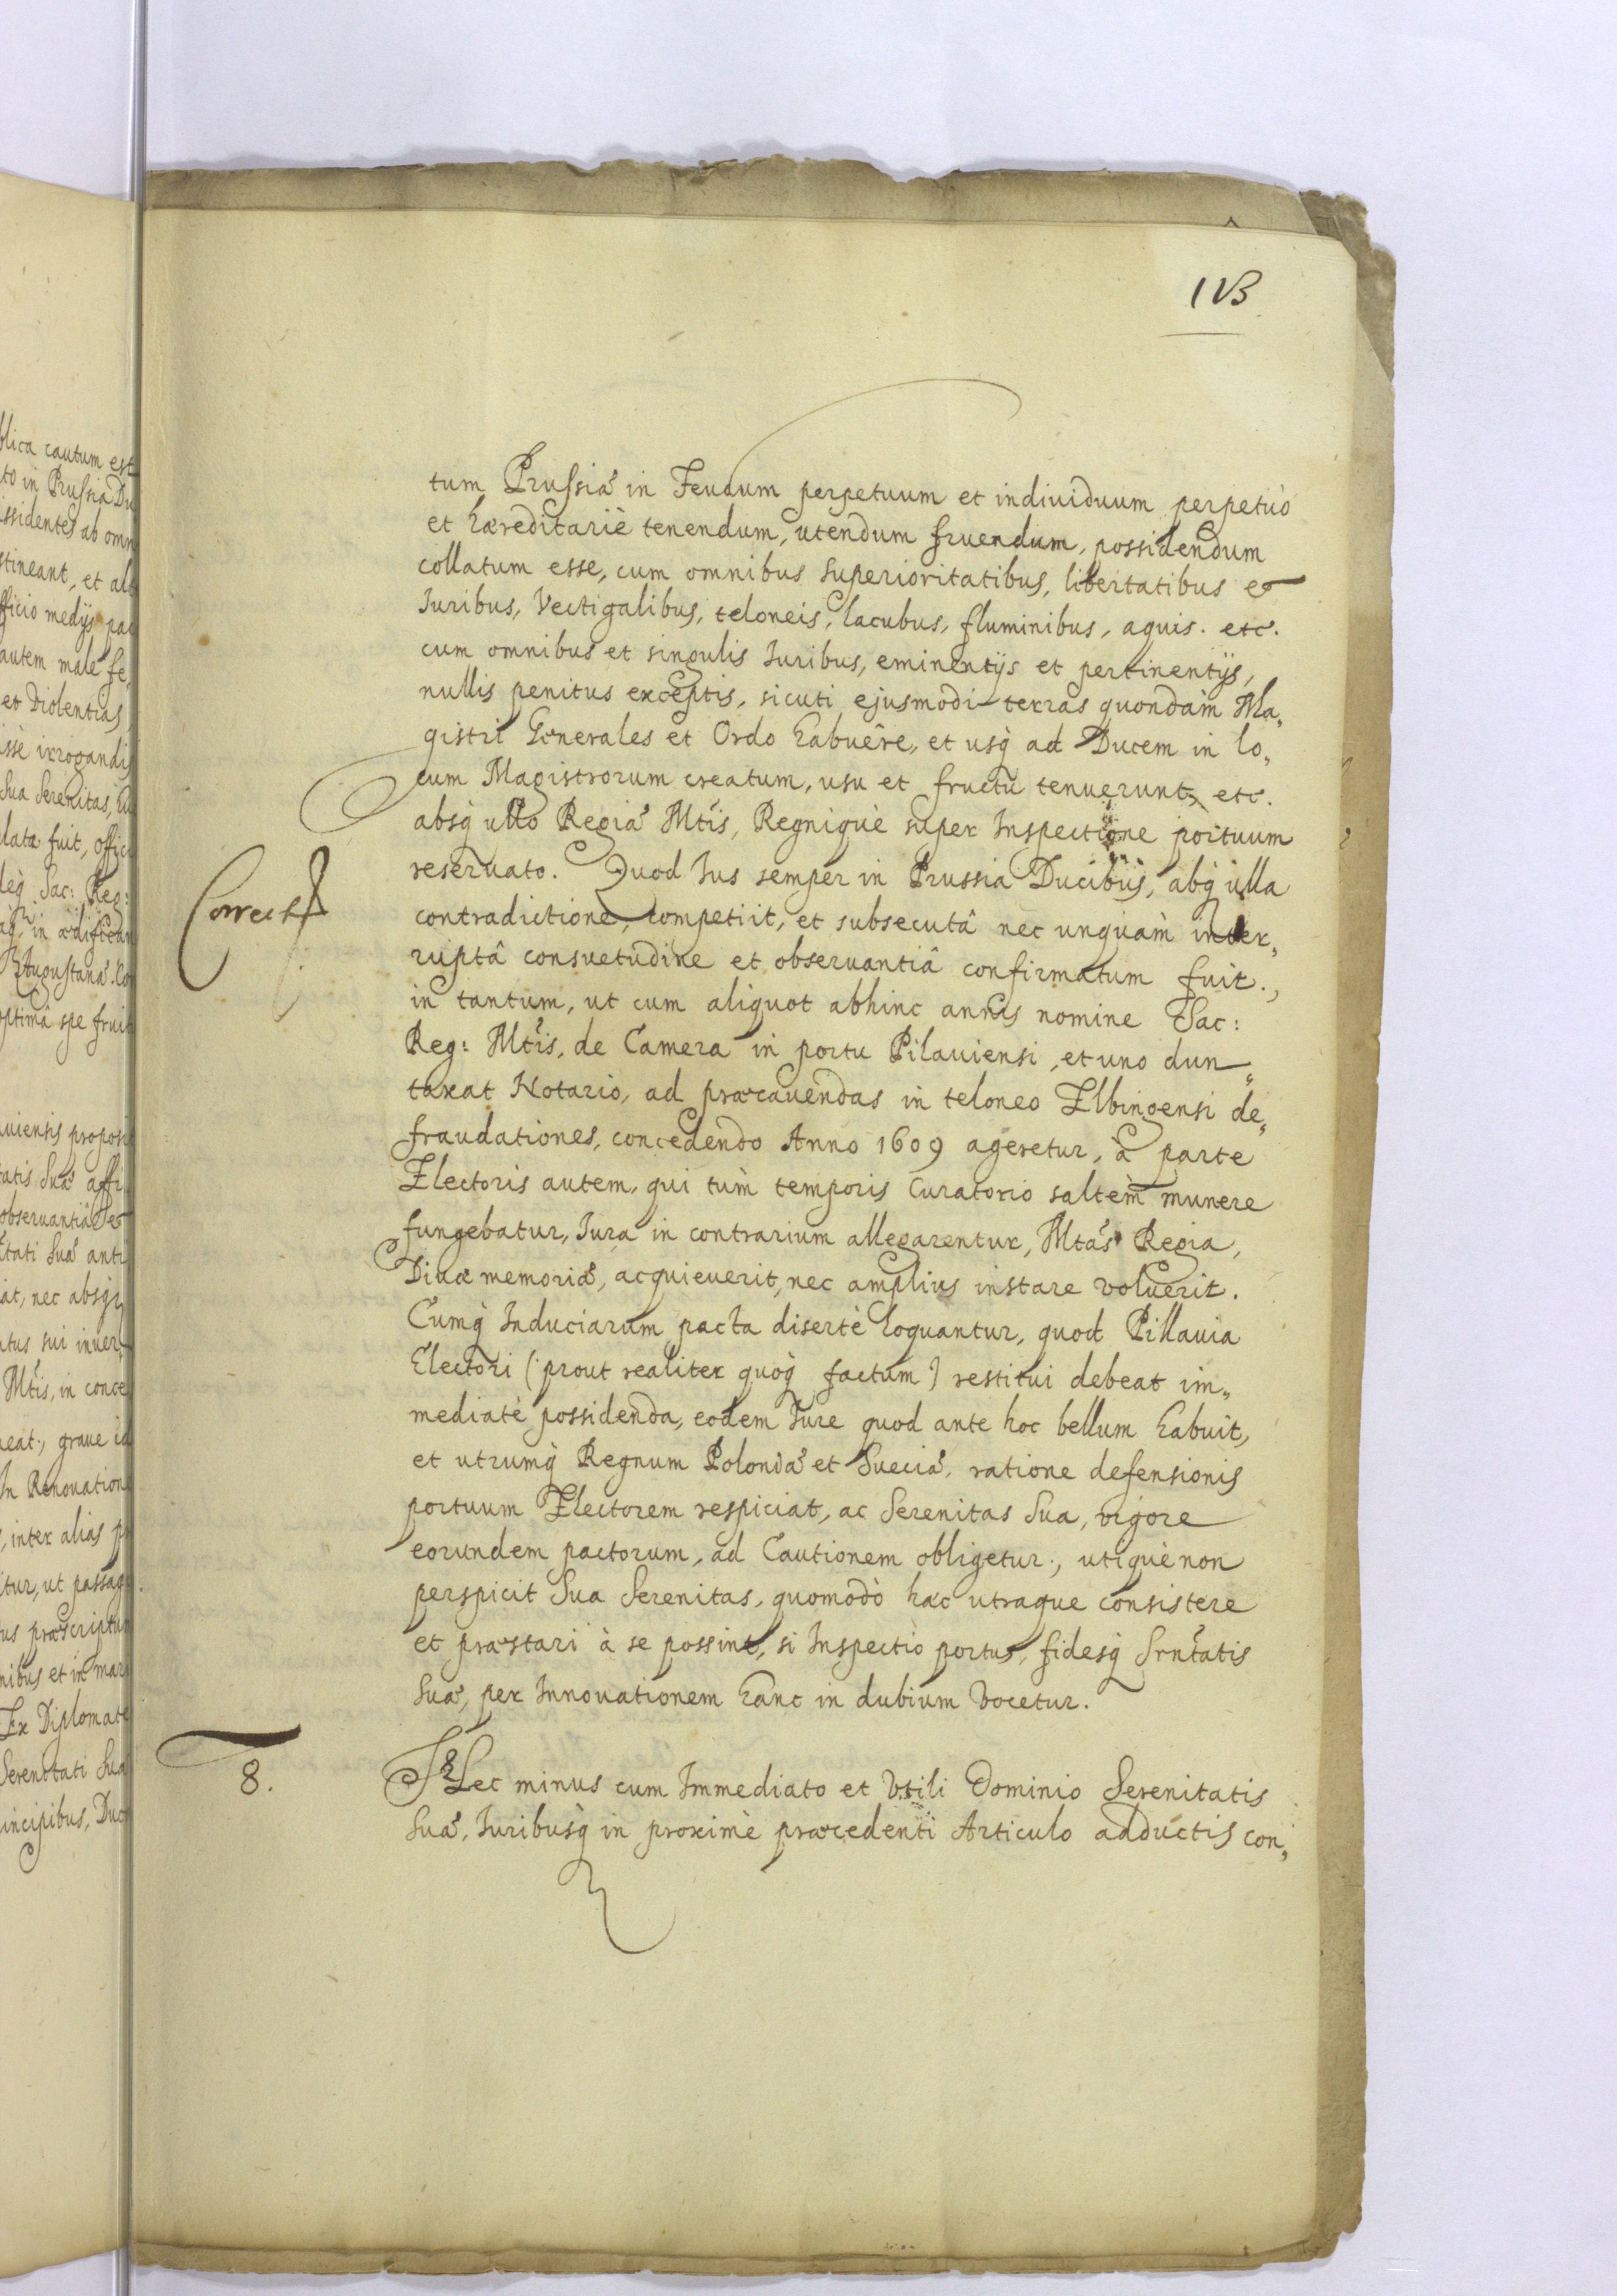 blica cautum est
to in Prussia Du
issidentes ab omn
stineant, et alo
fficio medijs pac
autem malè fe,
et Violentias,
issè irrogandis
Sua Serenitas,
lata fuit, offic
Sac: Reg:
in ædifican
Augustanæ. Co
optimâ spe fruit
uiensis proposi
tatis Suæ affi
obseruantiâ et
tati Suæ anti
at, nec absq́
atus sui inuer
Mtis, in conce
neat., graue id
In Renouatione
, inter alias p
itur, ut passag
us præscriptus
nibus et in mar
Ex Diplomate
Serenitati Suæ
incipibus, Duc
113.
tum Prussiæ in Feudum perpetuum et indiuiduum perpetuò
et hæreditariè tenendum, utendum fruendum, possidendum
collatum esse, cum omnibus superioritatibus, libertatibus et
Iuribus, Vectigalibus, teloneis, lacubus, fluminibus, aquis. etc.
cum omnibus et singulis Iuribus, eminentijs et pertinentijs,
nullis penitus exceptis, sicuti ejusmodi terras quondàm Ma„
gistri Generales et Ordo habuêre, et usq́ ad Ducem in lo„
cum Magistrorum creatum, usu et fructu tenuerunt, etc.
absq́ ullo Regiæ Mtis, Regniquè super Inspectione portuum
reseruato. Quod Ius semper in Prussia Ducibus, absq́ ulla
Correct
contradictione, competiit, et subsecutâ nec unquàm inter„
ruptâ consuetudine et obseruantiâ confirmatum fuit.,
in tantum, ut cum aliquot abhinc annis nomine Sac:
Reg: Mtis, de Camera in portu Pilauiensi, et uno dun„
taxat Notario, ad præcauendas in teloneo Elbingensi de„
fraudationes, concedendo Anno 1609 ageretur, à parte
Electoris autem, qui tùm temporis Curatorio saltèm munere
fungebatur, Iura in contrarium allegarentur, Mtas Regia,
Diuæ memoriæ, acquieuerit, nec amplius instare voluerit.
Cumq́ Induciarum pacta disertè loquantur, quod Pillauia
Electori (prout realiter quoq́ factum) restitui debeat im„
mediatè possidenda, eodem Iure quod ante hoc bellum habuit,
et utrumq́ Regnum Poloniæ et Sueciæ, ratione defensionis
portuum Electorem respiciat, ac Serenitas Sua, vigore
eorundem pactorum, ad Cautionem obligetur., utiquè non
perspicit Sua Serenitas, quomodò hæc utraque consistere
et præstari à se possint, si Inspectio portus, fidesq́ Srntatis
Suæ, per Innouationem hanc in dubium vocetur.
8.
Nec minus cum Immediato et Vtili Dominio Serenitatis
Suæ, Iuribusq́ in proximè præcedenti Articulo adductis con„